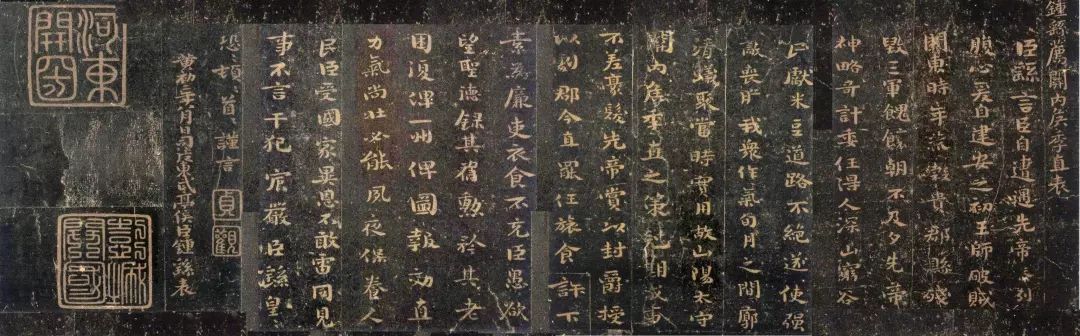 鍾繇薦關內侯季直表
臣繇言臣自遭遇先帝忝列
腹心爰自建安之初王師破賊
關東時年荒穀貴郡縣殘
毀三軍餽饟朝不及夕先帝
神略奇計委任得人深山窮谷
民獻米豆道路不絕遂使強
敵喪膽我眾作氣旬月之間廓
清蟻聚當時實用故山陽太守
關內侯季直之策剋期成事
不差毫髮先帝賞以封爵授
以劇郡今直罷任旅食許下
素為廉吏衣食不充臣愚欲
望聖德錄其舊勳矜其老
困復俾一州俾圖報效直
力氣尚壯必能夙夜保養人
民臣受國家異恩不敢雷同見
事不言干犯宸嚴臣繇皇
恐頓首謹言
貞觀
黃初二年八月日司徒東武亭侯臣鍾繇表
河東